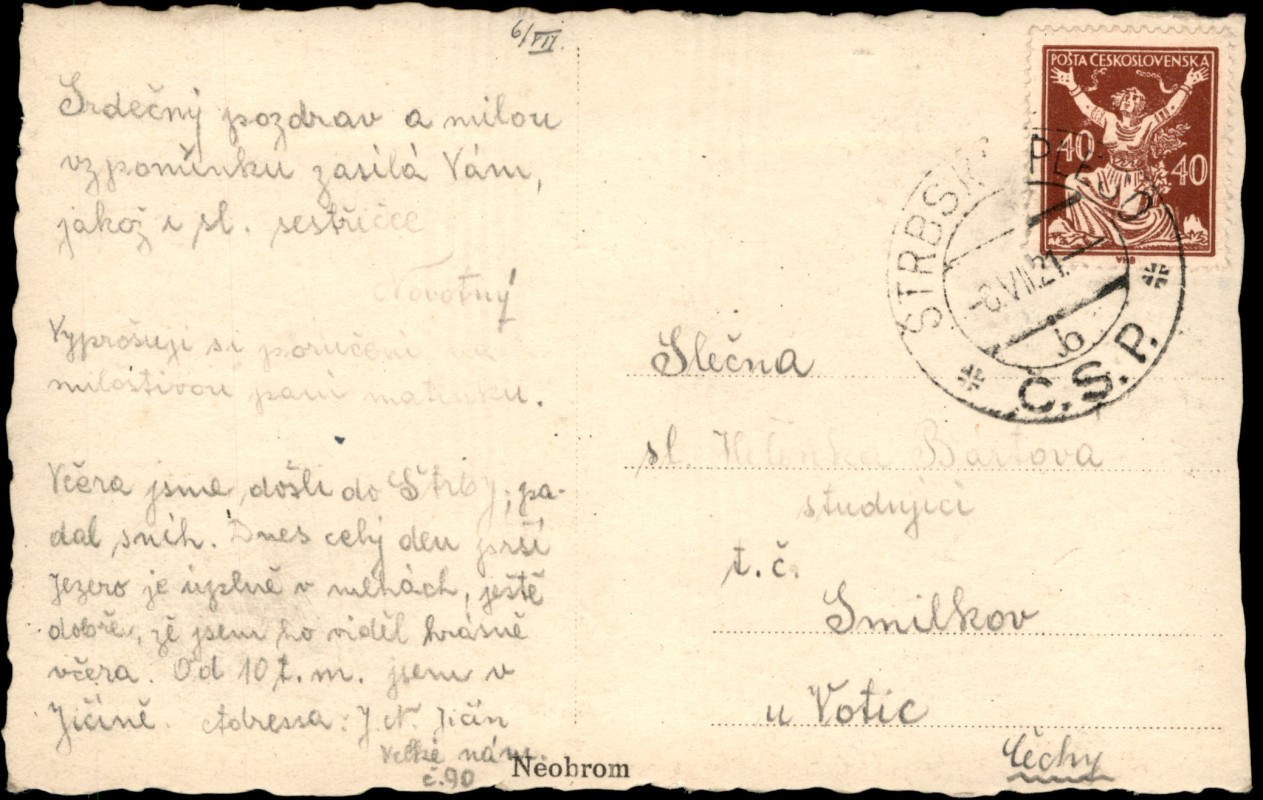 6/VII.
Srdečný pozdrav a milou
vzpomínku zasílá Vám,
jakož i sl. sestřičce
Novotný
Vyprošuji si poručení
milostivou paní matinku.
Včera jsme došli do Štrby, pa-
dal sníh. Dnes celý den prší
Jezero je úplně v mlhách, ještě
dobře, že jsem ho viděl krásně
včera. Od 10 t. m. jsem v
Jičíně. Adressa: J. N. Jičín
Velké nám.
č. 90
Neobrom
POŠTA ČESKOSLOVENSKÁ
40 40
ŠTRBSKÉ PLESO
VII.21
b
Č.S.P.
Slečna
sl. Bártova
studující
t. č.
Smilkov
u Votic
Čechy